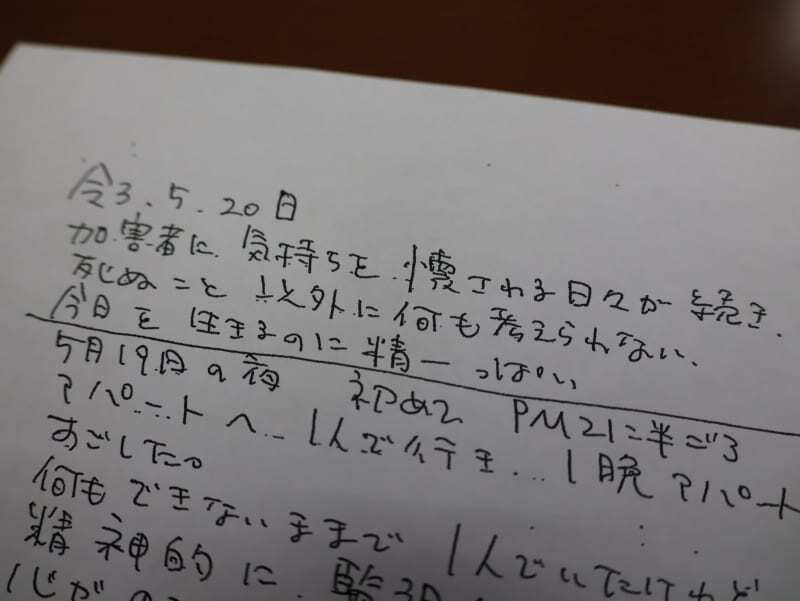 令3.5.20日
加害者に気持ちを壊される日々が続き.
死ぬこと以外に何も考えられない.
今日を生きるのに精一っぱい
5月19日の夜 初めて PM21:半ごろ
アパートへ…1人で行き…1晩アパート
すごした。
何もできないままで1人でいたけれど
精神的に